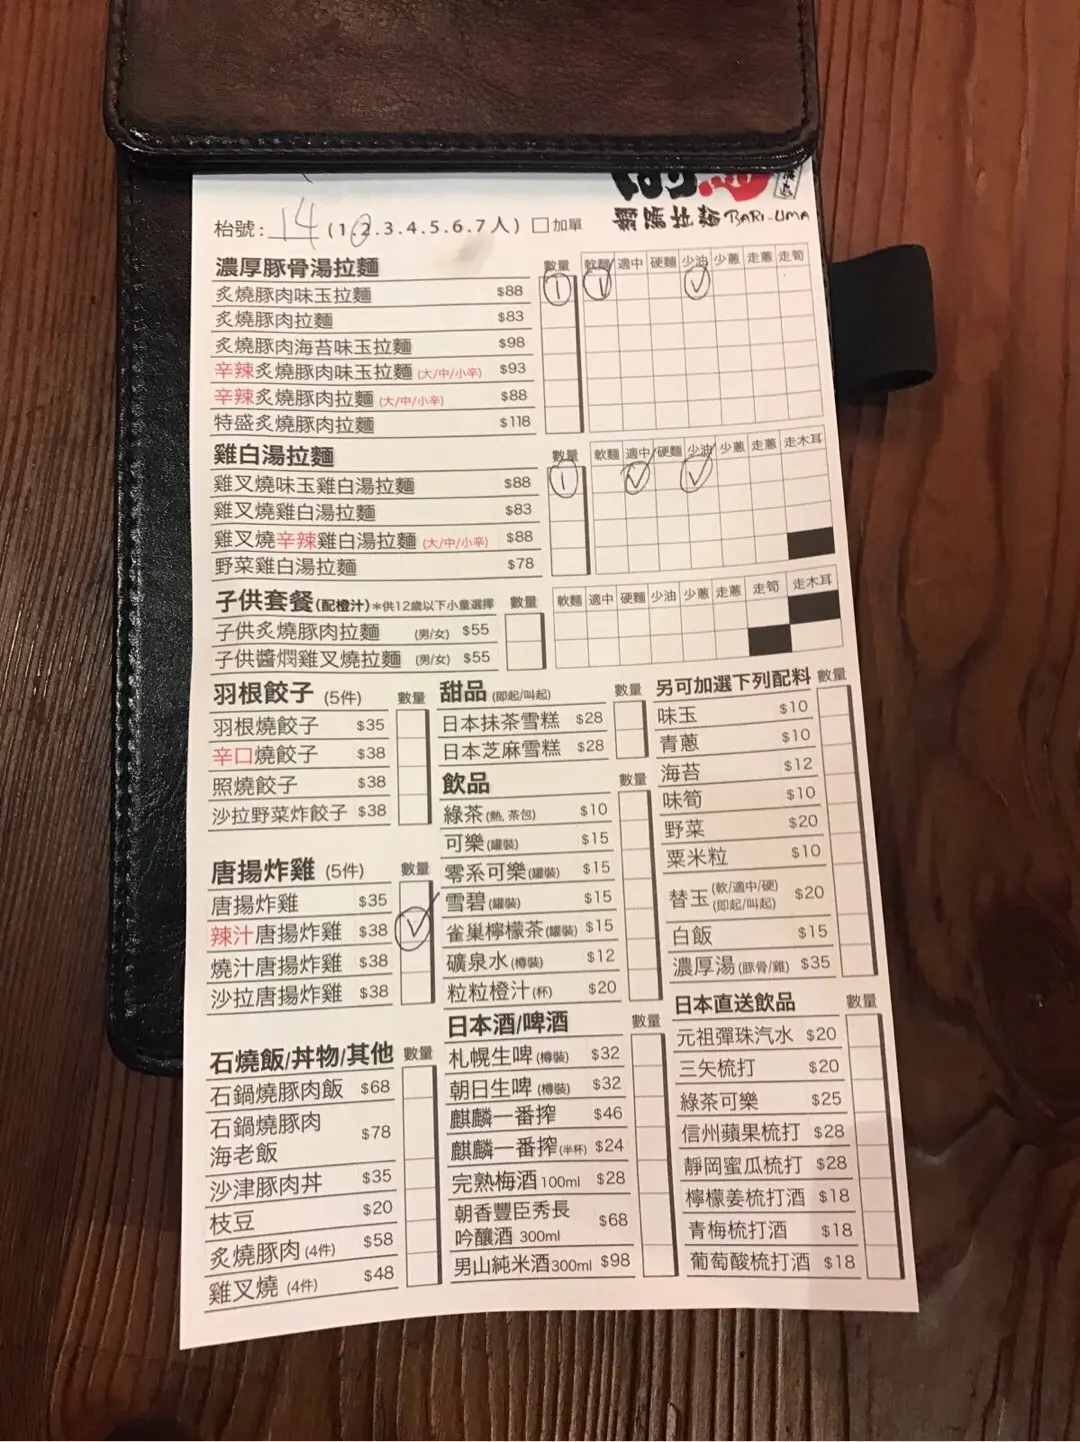 霸嗎拉麵 BARI-UMA
枱號: 14 (1.2.3.4.5.6.7人) □加單
濃厚豚骨湯拉麵 數量 軟麵 適中 硬麵 少油 少蔥 走蔥 走筍
炙燒豚肉味玉拉麵 $88 1 ✓ ✓
炙燒豚肉拉麵 $83
炙燒豚肉海苔味玉拉麵 $98
辛辣炙燒豚肉味玉拉麵 (大/中/小辛) $93
辛辣炙燒豚肉拉麵 (大/中/小辛) $88
特盛炙燒豚肉拉麵 $118
雞白湯拉麵 數量 軟麵 適中 硬麵 少油 少蔥 走蔥 走木耳
雞叉燒味玉雞白湯拉麵 $88 1 ✓ ✓
雞叉燒雞白湯拉麵 $83
雞叉燒辛辣雞白湯拉麵 (大/中/小辛) $88
野菜雞白湯拉麵 $78
子供套餐(配橙汁)*供12歲以下小童選擇 數量 軟麵 適中 硬麵 少油 少蔥 走蔥 走筍 走木耳
子供炙燒豚肉拉麵 (男/女) $55
子供醬燜雞叉燒拉麵 (男/女) $55
羽根餃子 (5件) 數量
羽根燒餃子 $35
辛口燒餃子 $38
照燒餃子 $38
沙拉野菜炸餃子 $38
唐揚炸雞 (5件) 數量
唐揚炸雞 $35
辣汁唐揚炸雞 $38 ✓
燒汁唐揚炸雞 $38
沙拉唐揚炸雞 $38
石燒飯/丼物/其他 數量
石鍋燒豚肉飯 $68
石鍋燒豚肉
海老飯 $78
沙津豚肉丼 $35
枝豆 $20
炙燒豚肉 (4件) $58
雞叉燒 (4件) $48
甜品 (即起/叫起) 數量
日本抹茶雪糕 $28
日本芝麻雪糕 $28
飲品 數量
綠茶 (熱, 茶包) $10
可樂 (罐裝) $15
零系可樂 (罐裝) $15
雪碧 (罐裝) $15
雀巢檸檬茶 (罐裝) $15
礦泉水 (樽裝) $12
粒粒橙汁 (杯) $20
日本酒/啤酒 數量
札幌生啤 (樽裝) $32
朝日生啤 (樽裝) $32
麒麟一番搾 $46
麒麟一番搾 (半杯) $24
完熟梅酒 100ml $28
朝香豐臣秀長
吟釀酒 300ml $68
男山純米酒 300ml $98
另可加選下列配料 數量
味玉 $10
青蔥 $10
海苔 $12
味筍 $10
野菜 $20
粟米粒 $10
替玉 (軟/適中/硬) (即起/叫起) $20
白飯 $15
濃厚湯 (豚骨/雞) $35
日本直送飲品 數量
元祖彈珠汽水 $20
三矢梳打 $20
綠茶可樂 $25
信州蘋果梳打 $28
靜岡蜜瓜梳打 $28
檸檬姜梳打酒 $18
青梅梳打酒 $18
葡萄酸梳打酒 $18